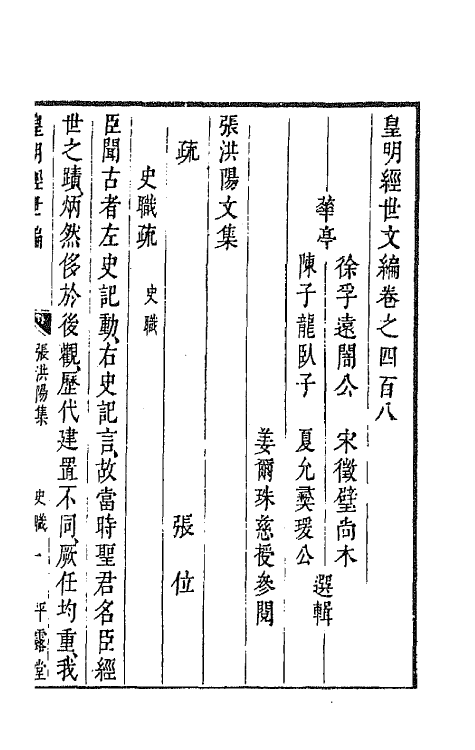 皇明經世文編卷之四百八
徐孚遠闇公 宋徵璧尚木
華亭 選輯
陳子龍臥子 夏允彝瑗公
姜爾珠慈授參閱
張洪陽文集
疏 張位
史職疏 史職
臣聞古者左史記動、右史記言、故當時聖君名臣經
世之蹟、炳然侈於後觀、歷代建置不同、厥任均重、我
皇明經世編 張洪陽集 史職 一 平露堂